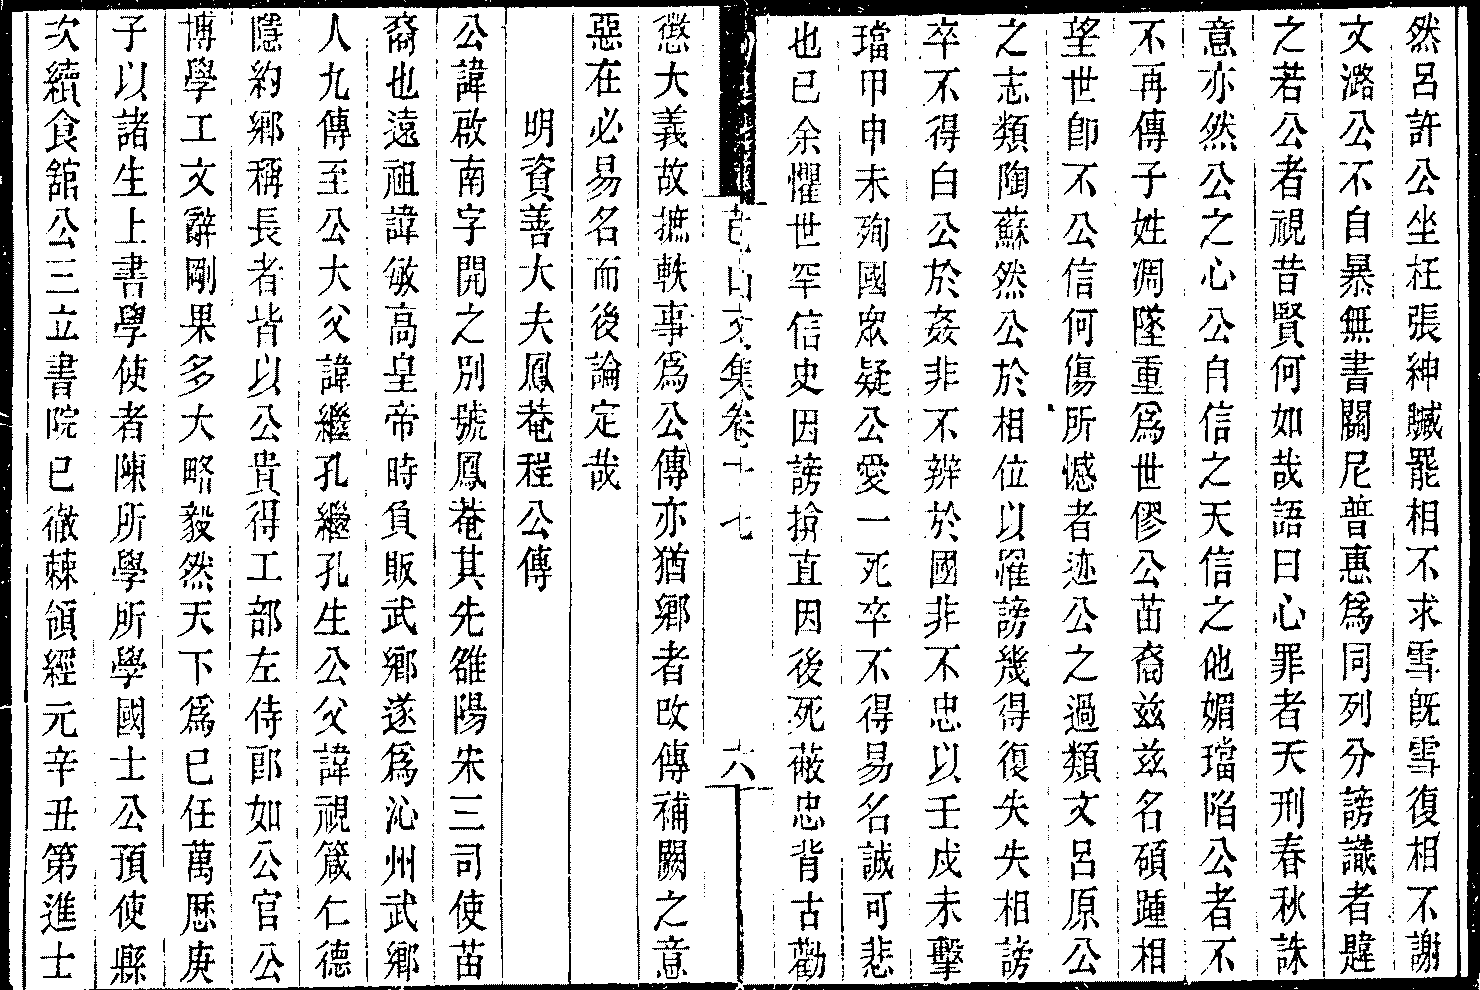 然呂許公坐枉張紳贓罷相不求雪旣雪復相不謝
文潞公不自暴無書關尼普惠爲同列分謗識者韙
之若公者視昔賢何如哉語曰心罪者天刑春秋誅
意亦然公之心公自信之天信之他媚璫陷公者不
不再傳子姓凋墜重爲世僇公苗裔兹兹名碩踵相
望世卽不公信何傷所憾者迹公之過類文呂原公
之志類陶蘇然公於相位以罹謗幾得復失失相謗
卒不得白公於姦非不辨於國非不忠以壬戌未擊
璫甲申未殉國衆疑公愛一死卒不得易名誠可悲
也已余懼世罕信史因謗揜直因後死蔽忠背古勸
山文集卷十七
六
懲大義故摭軼事爲公傳亦猶鄉者改傳補闕之意
惡在必易名而後論定哉
明資善大夫鳳菴程公傳
公諱啟南字開之別號鳳菴其先雒陽宋三司使苗
裔也遠祖諱敏高皇帝時負販武鄉遂爲沁州武鄉
人九傳至公大父諱繼孔繼孔生公父諱視箴仁德
隱約鄉稱長者皆以公貴得工部左侍郎如公官公
博學工文辭剛果多大略毅然天下爲已任萬厯庚
子以諸生上書學使者陳所學所學國士公預使縣
次續食舘公三立書院已徹棘領經元辛丑第進士